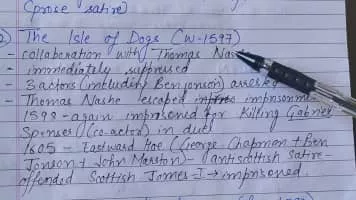 (prose satire)
The Isle of Dogs (W-1597)
- collaboration with Thomas Nas
- immediately suppressed
- 3 actors (including Ben Jonson) arrested
- Thomas Nashe escaped imprisonm
1598 - again imprisoned for killing Gabriel
Spenser (co-actor) in duel
1605 - Eastward Hoe (George Chapman + Ben
Jonson + John Marston) - antiscottish satire -
offended Scottish James-I → imprisoned.